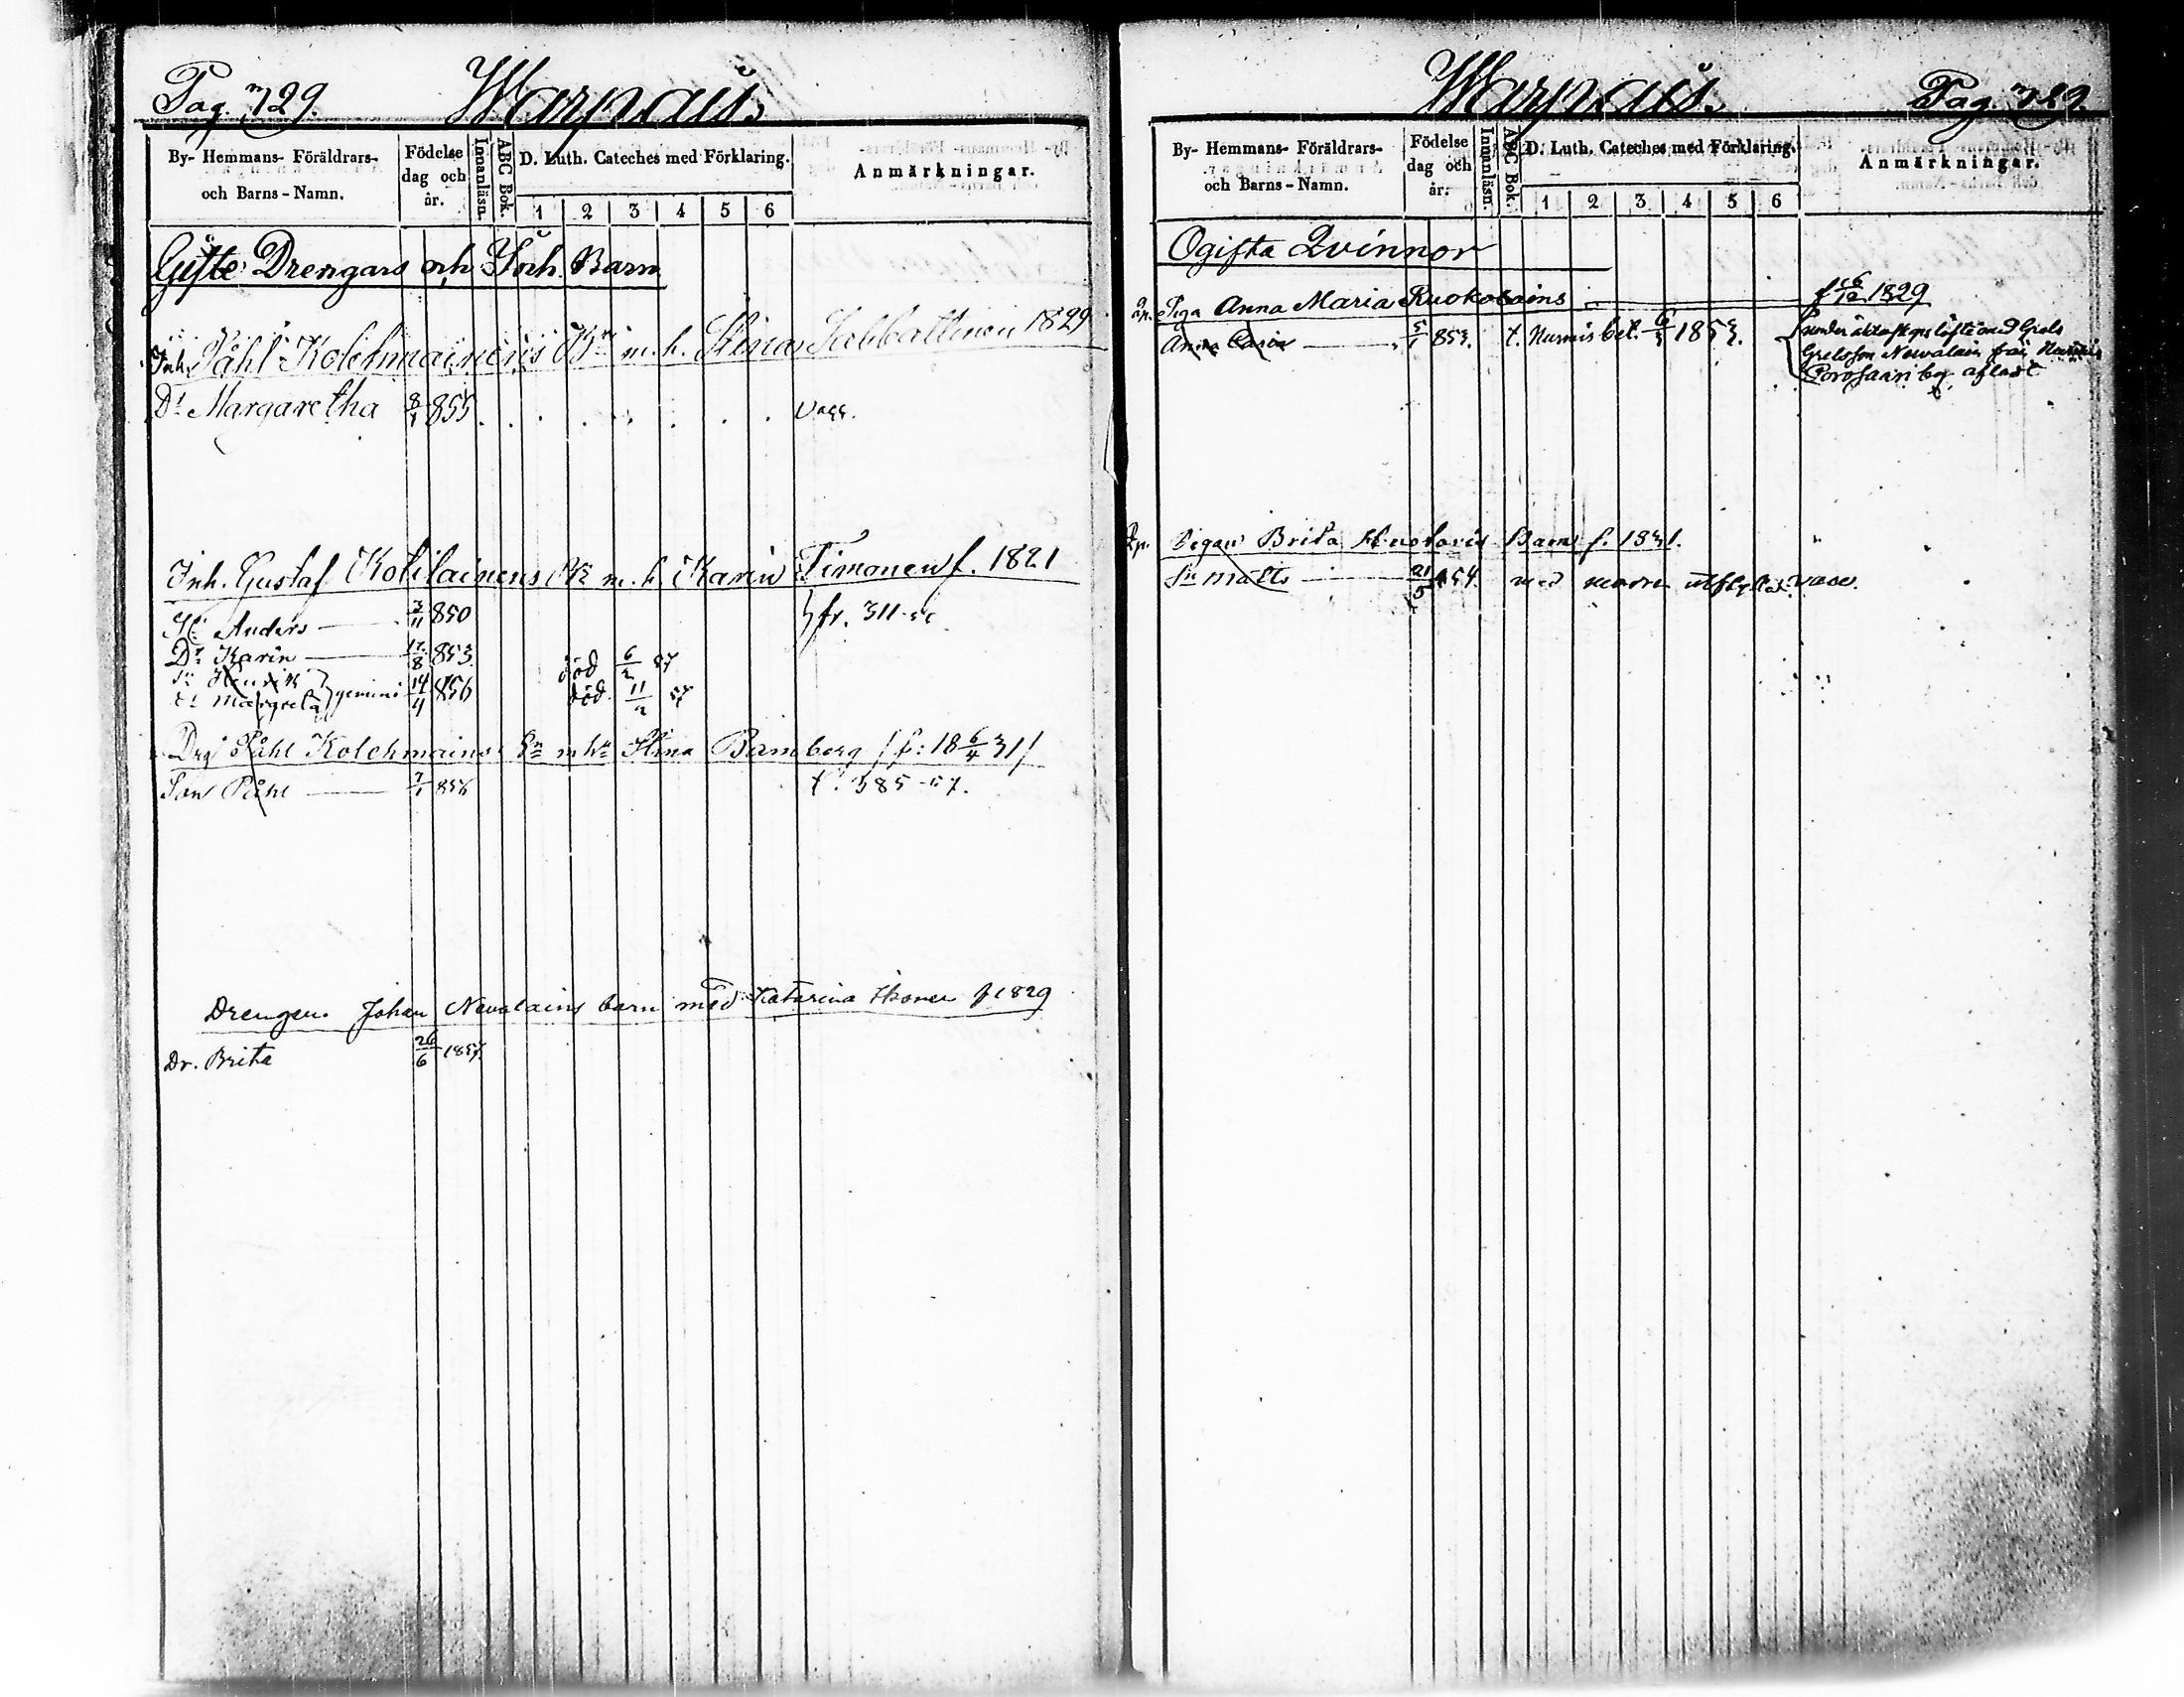 Pag. 729. Warpais.
By- Hemmans- Föräldrars- och Barns-Namn. Födelse dag och år. Innanläsn. ABC Bok. D. Luth. Cateches med Förklaring. 1 2 3 4 5 6 Anmärkningar.
Gifte Drengars och Inh. Barn
Inh. Påhl Kolehmainens Bn m. h. Stina 1829
Dr Margaretha 8/1 855 vacc.
Inh. Gustaf Kotilainens m. h. Karin Timonen f. 1821
Anders 850 fr. 311
Dr Karin 17/8 853
Sn Henrik död 6/2 57
Dr Margreta gemini 14/4 856 död 11/2 57
Drg Påhl Kolehmains Bn m hu Stina Bamberg /f: 18 6/4 31/
Son Påhl 7/1 856 t. 385-57.
Drengen Johan Nevalains barn med Katarina Ikonen f 1829
Dr. Brita 26/6 1857.
Warpais. Pag. 729.
By- Hemmans- Föräldrars- och Barns-Namn. Födelse dag och år. Innanläsn. ABC Bok. D. Luth. Cateches med Förklaring. 1 2 3 4 5 6 Anmärkningar.
Ogifta Qvinnor
Piga Anna Maria Ruokolains f 1829
Anna Caisa 5/1 853. t. Nurmis bet. 1853. under äktenskaps löfte med Grels
Grelsson Newalain från Nurmis
Porosaari by aflad
Pigan Brita Barn f. 1831.
Sn Matts 21/5 54. med modren utflyttat vacc.